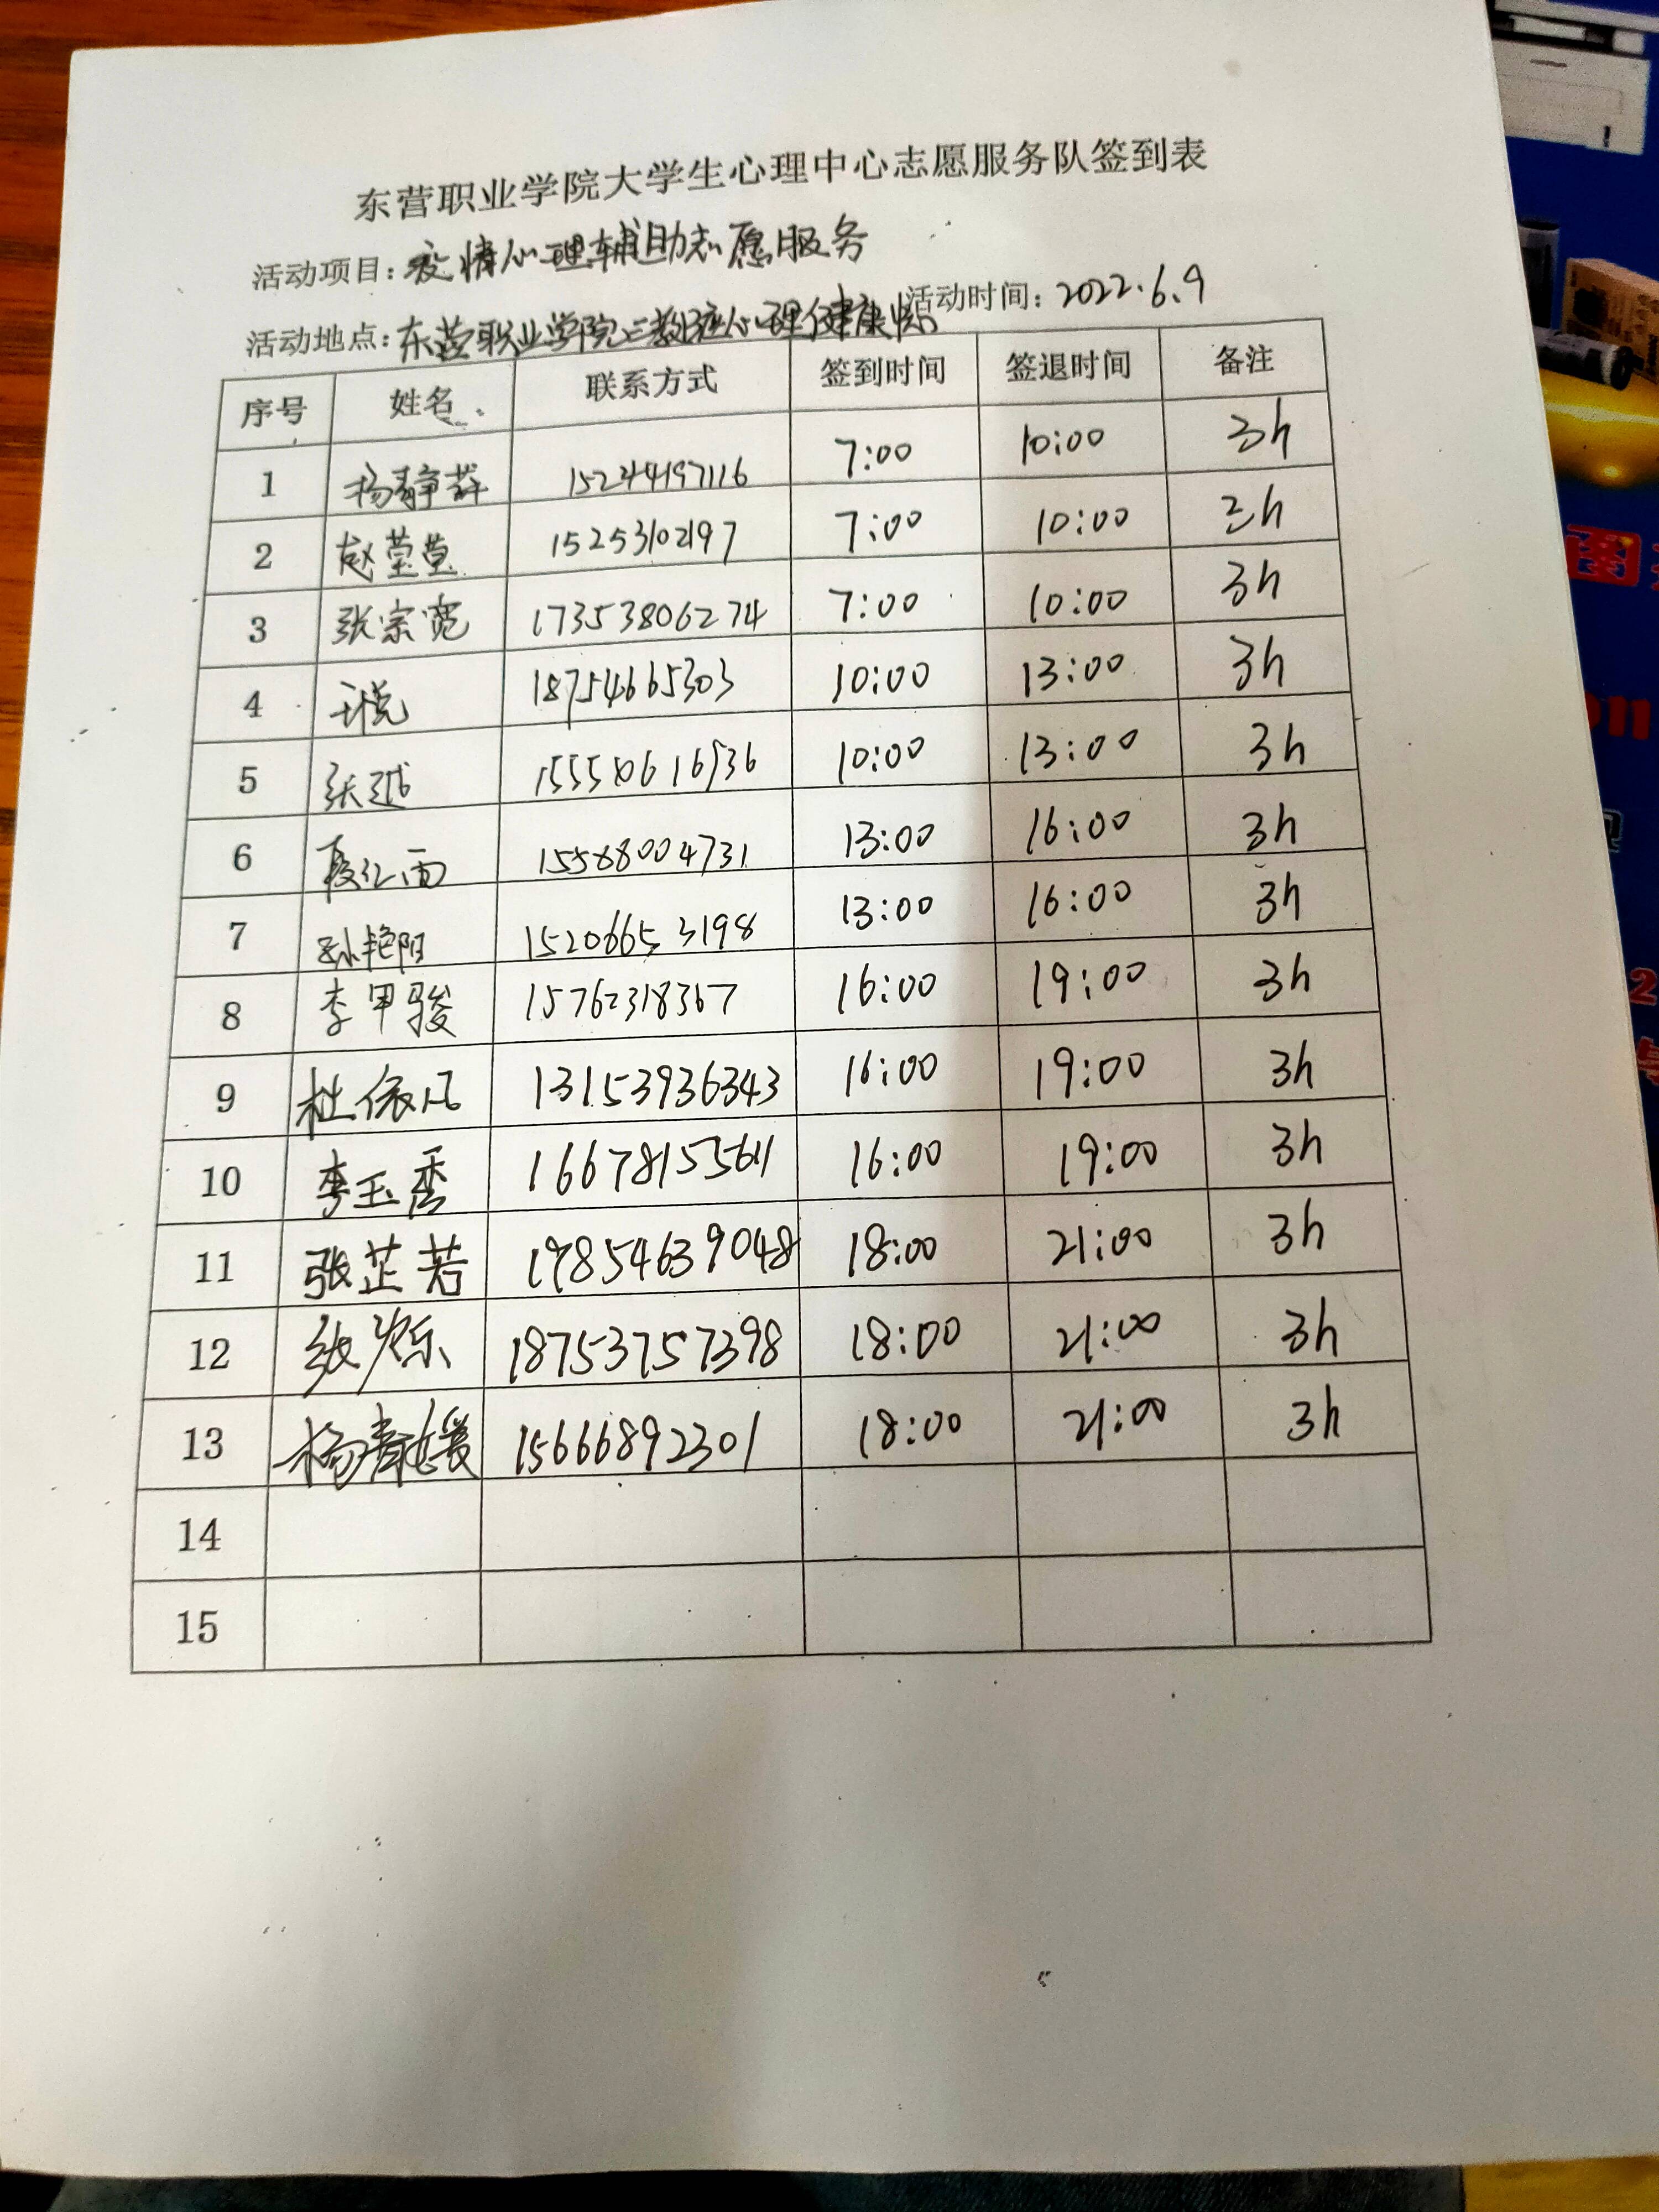 东营职业学院大学生心理中心志愿服务队签到表
活动项目：疫情心理辅助志愿服务
活动时间：2022.6.9
活动地点：东营职业学院三教 心理健康
序号 姓名 联系方式 签到时间 签退时间 备注
1 杨静 15244197116 7:00 10:00 3h
2 赵莹莹 15253102197 7:00 10:00 3h
3 张宗宽 17353806274 7:00 10:00 3h
4 王悦 18754665303 10:00 13:00 3h
5 张越 10:00 13:00 3h
6 15588004731 13:00 16:00 3h
7 孙艳阳 15206653198 13:00 16:00 3h
8 李甲骏 15762318367 16:00 19:00 3h
9 杜依凡 13153936343 16:00 19:00 3h
10 李玉秀 16:00 19:00 3h
11 张芷若 19854639048 18:00 21:00 3h
12 张烁 18753757398 18:00 21:00 3h
13 杨 15666892301 18:00 21:00 3h
14
15